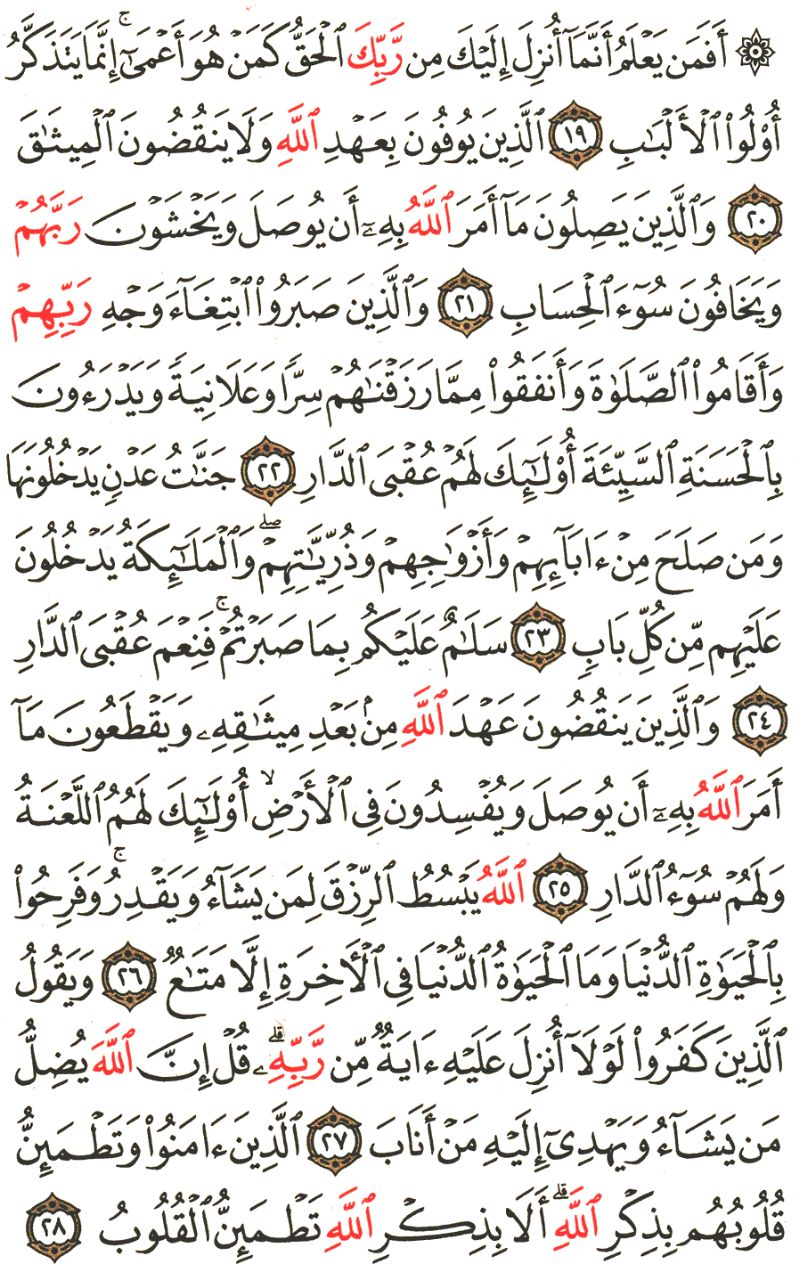 ۞ أَفَمَن يَعْلَمُ أَنَّمَآ أُنزِلَ إِلَيْكَ مِن رَّبِّكَ ٱلْحَقُّ كَمَنْ هُوَ أَعْمَىٰٓ ۚ إِنَّمَا يَتَذَكَّرُ
أُو۟لُوا۟ ٱلْأَلْبَـٰبِ ١٩ ٱلَّذِينَ يُوفُونَ بِعَهْدِ ٱللَّهِ وَلَا يَنقُضُونَ ٱلْمِيثَـٰقَ
٢٠ وَٱلَّذِينَ يَصِلُونَ مَآ أَمَرَ ٱللَّهُ بِهِۦٓ أَن يُوصَلَ وَيَخْشَوْنَ رَبَّهُمْ
وَيَخَافُونَ سُوٓءَ ٱلْحِسَابِ ٢١ وَٱلَّذِينَ صَبَرُوا۟ ٱبْتِغَآءَ وَجْهِ رَبِّهِمْ
وَأَقَامُوا۟ ٱلصَّلَوٰةَ وَأَنفَقُوا۟ مِمَّا رَزَقْنَـٰهُمْ سِرًّا وَعَلَانِيَةً وَيَدْرَءُونَ
بِٱلْحَسَنَةِ ٱلسَّيِّئَةَ أُو۟لَـٰٓئِكَ لَهُمْ عُقْبَى ٱلدَّارِ ٢٢ جَنَّـٰتُ عَدْنٍ يَدْخُلُونَهَا
وَمَن صَلَحَ مِنْ ءَابَآئِهِمْ وَأَزْوَٰجِهِمْ وَذُرِّيَّـٰتِهِمْ ۖ وَٱلْمَلَـٰٓئِكَةُ يَدْخُلُونَ
عَلَيْهِم مِّن كُلِّ بَابٍ ٢٣ سَلَـٰمٌ عَلَيْكُم بِمَا صَبَرْتُمْ ۚ فَنِعْمَ عُقْبَى ٱلدَّارِ
٢٤ وَٱلَّذِينَ يَنقُضُونَ عَهْدَ ٱللَّهِ مِنۢ بَعْدِ مِيثَـٰقِهِۦ وَيَقْطَعُونَ مَآ
أَمَرَ ٱللَّهُ بِهِۦٓ أَن يُوصَلَ وَيُفْسِدُونَ فِى ٱلْأَرْضِ ۙ أُو۟لَـٰٓئِكَ لَهُمُ ٱللَّعْنَةُ
وَلَهُمْ سُوٓءُ ٱلدَّارِ ٢٥ ٱللَّهُ يَبْسُطُ ٱلرِّزْقَ لِمَن يَشَآءُ وَيَقْدِرُ ۚ وَفَرِحُوا۟
بِٱلْحَيَوٰةِ ٱلدُّنْيَا وَمَا ٱلْحَيَوٰةُ ٱلدُّنْيَا فِى ٱلْـَٔاخِرَةِ إِلَّا مَتَـٰعٌ ٢٦ وَيَقُولُ
ٱلَّذِينَ كَفَرُوا۟ لَوْلَآ أُنزِلَ عَلَيْهِ ءَايَةٌ مِّن رَّبِّهِۦ ۗ قُلْ إِنَّ ٱللَّهَ يُضِلُّ
مَن يَشَآءُ وَيَهْدِىٓ إِلَيْهِ مَنْ أَنَابَ ٢٧ ٱلَّذِينَ ءَامَنُوا۟ وَتَطْمَئِنُّ
قُلُوبُهُم بِذِكْرِ ٱللَّهِ ۗ أَلَا بِذِكْرِ ٱللَّهِ تَطْمَئِنُّ ٱلْقُلُوبُ ٢٨